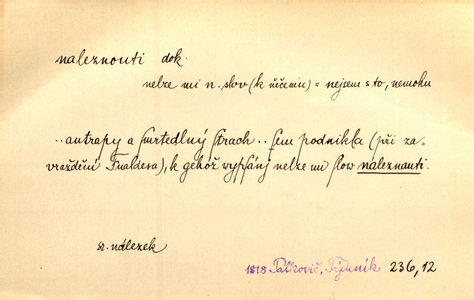 naleznouti dok.
nelze mi n. slov (k něčemu) = nejsem s to, nemohu
..autrapy a smrtedlný strach .. sem podnikla (při za-
vraždění Fualdesa), k gehož wypsánj nelze mi slow nalezauti.
sr. nálezek
1818 Palkovič, Týdenník 236,12